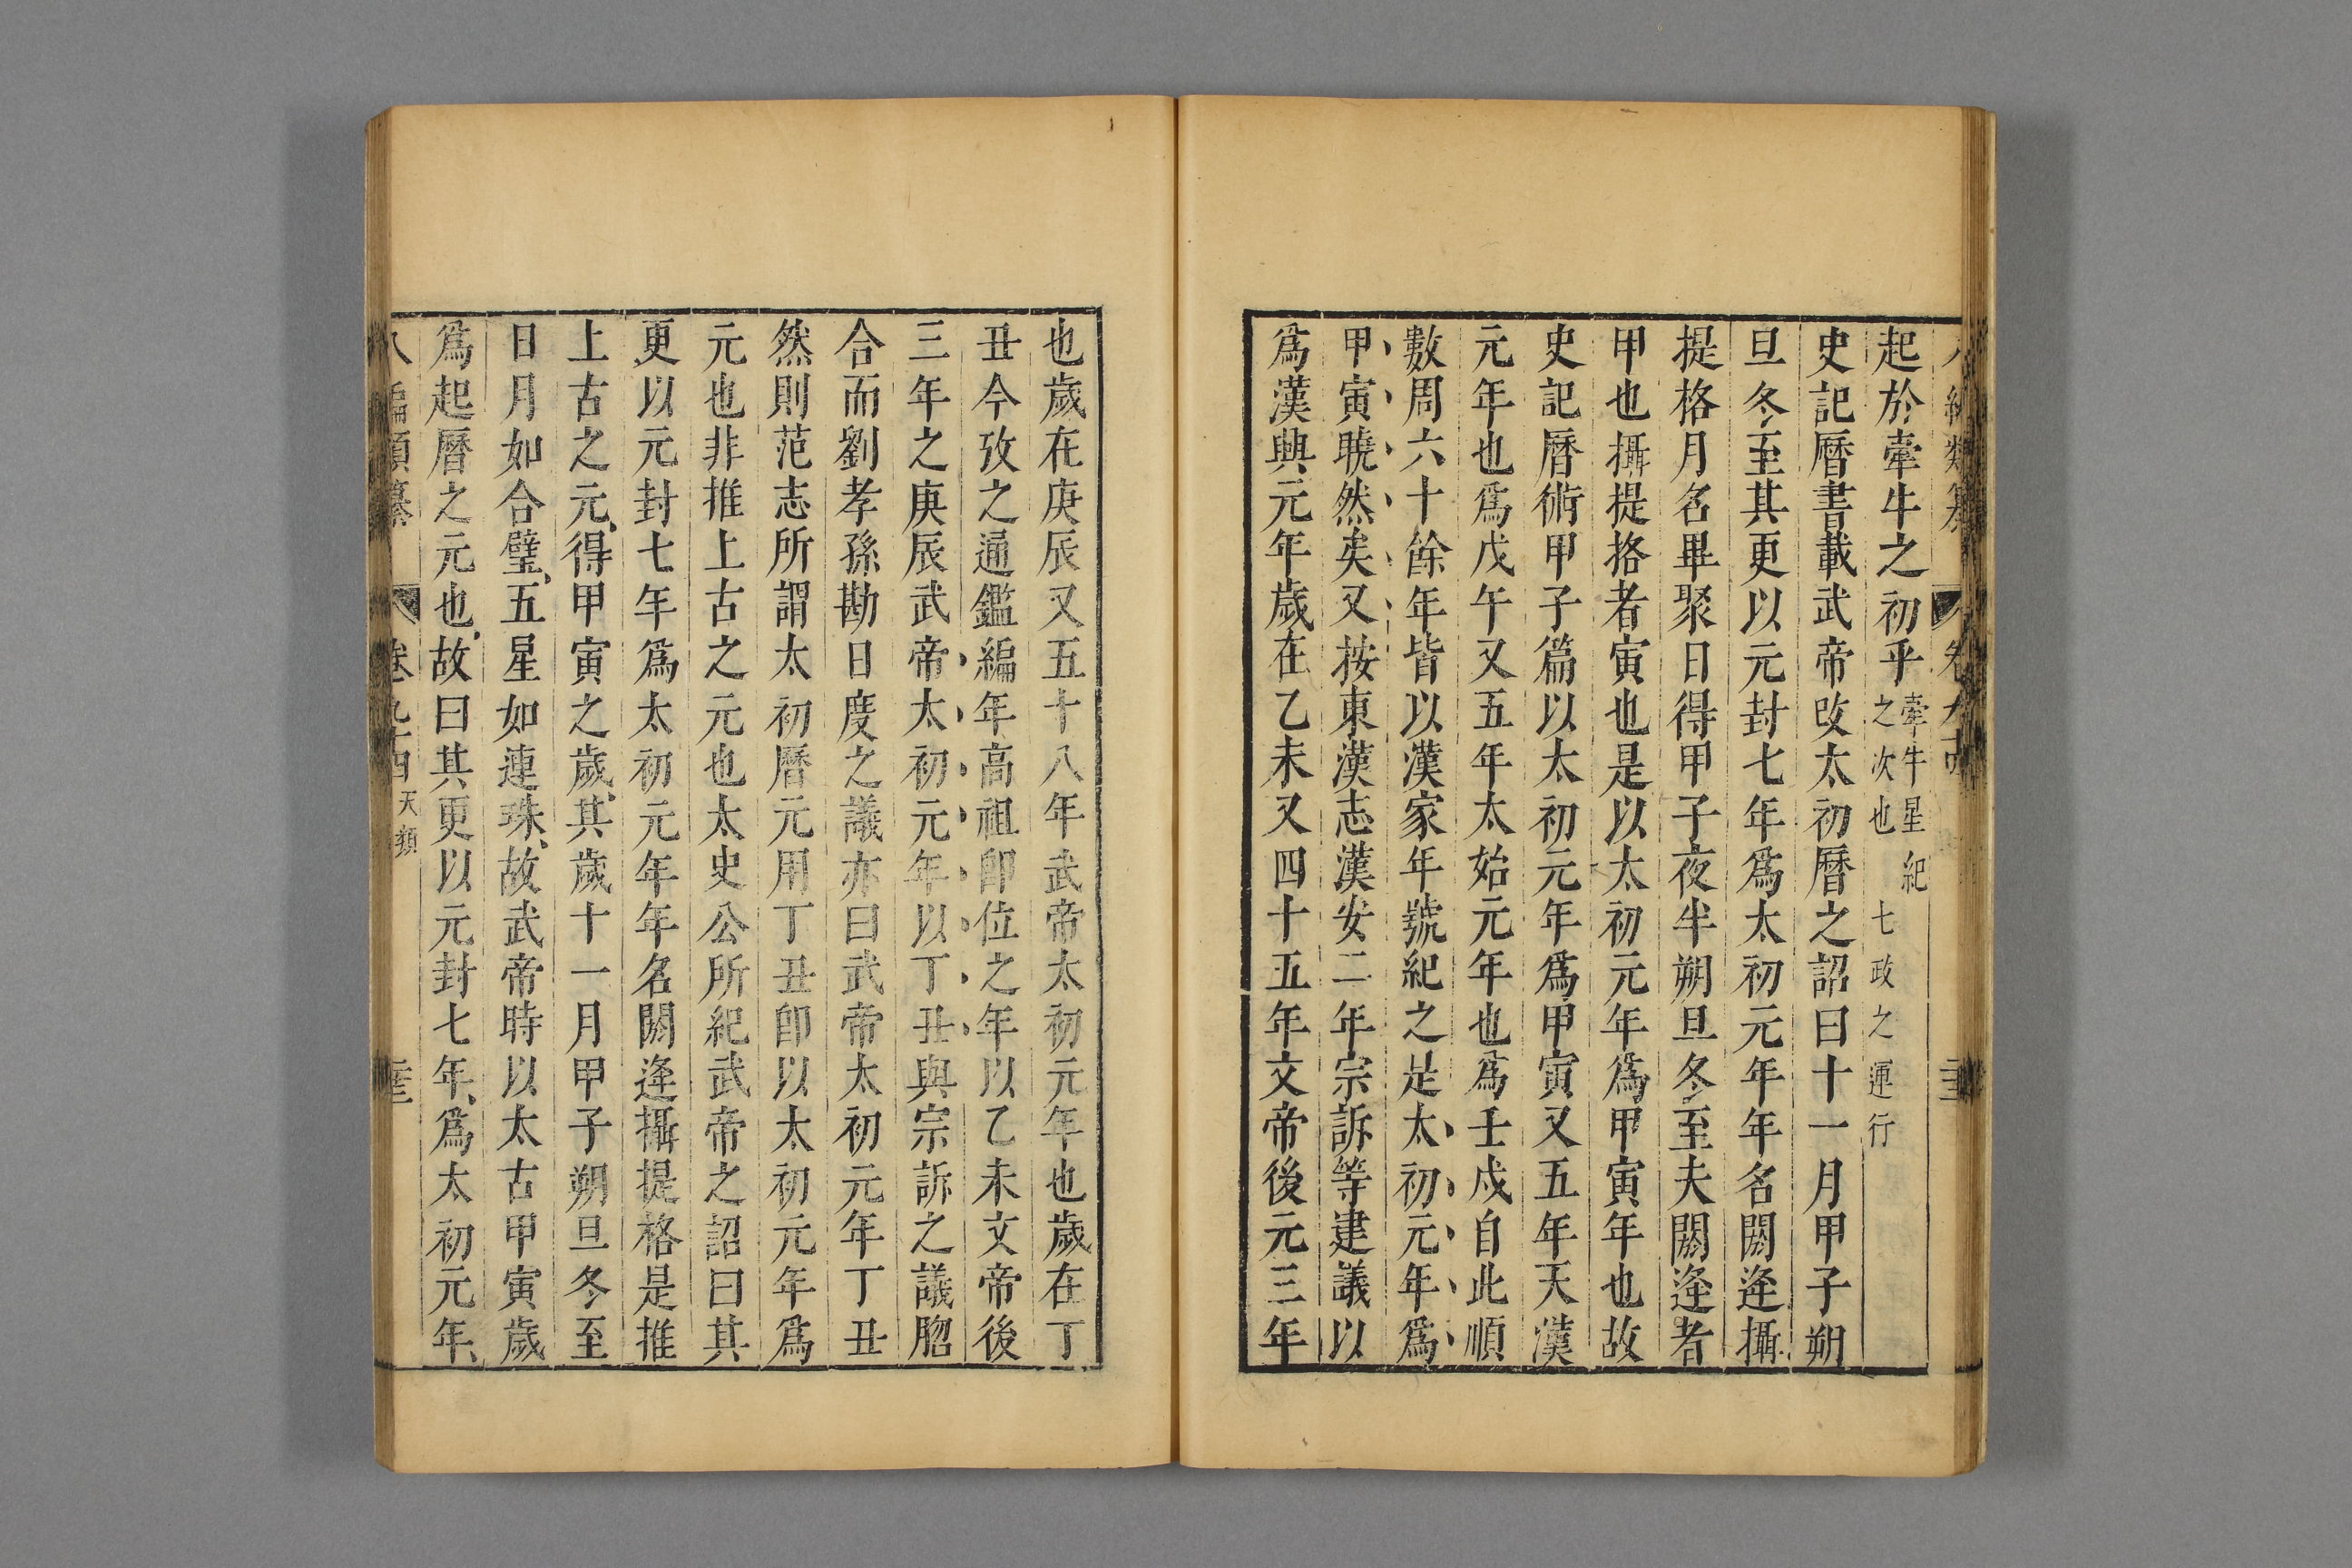 起於牽牛之初乎牽牛星紀之次也七政之運行
史記曆書載武帝改太初曆之詔曰十一月甲子朔
旦冬至其更以元封七年爲太初元年年名閼逢攝
提格月名畢聚日得甲子夜半朔旦冬至夫閼逢者
甲也攝提格者寅也是以太初元年爲甲寅年也故
史記曆術甲子篇以太初元年爲甲寅又五年天漢
元年也爲戊午又五年太始元年也爲壬戌自此順
數周六十餘年皆以漢家年號紀之是太初元年爲
甲寅曉然矣又按東漢志漢安二年宗訴等建議以
爲漢興元年歲在乙未又四十五年文帝後元三年
也歲在庚辰又五十八年武帝太初元年也歲在丁
丑今攷之通鑑編年高祖卽位之年以乙未文帝後
三年之庚辰武帝太初元年以丁丑與宗訴之議脗
合而劉孝孫勘日度之議亦曰武帝太初元年丁丑
然則范志所謂太初曆元用丁丑卽以太初元年爲
元也非推上古之元也太史公所紀武帝之詔曰其
更以元封七年爲太初元年年名閼逢攝提格是推
上古之元、得甲寅之歲、其歲十一月甲子朔旦冬至
日月如合璧、五星如連珠、故武帝時以太古甲寅歲
爲起曆之元也、故曰其更以元封七年、爲太初元年、
八編類纂 卷九十四 天類